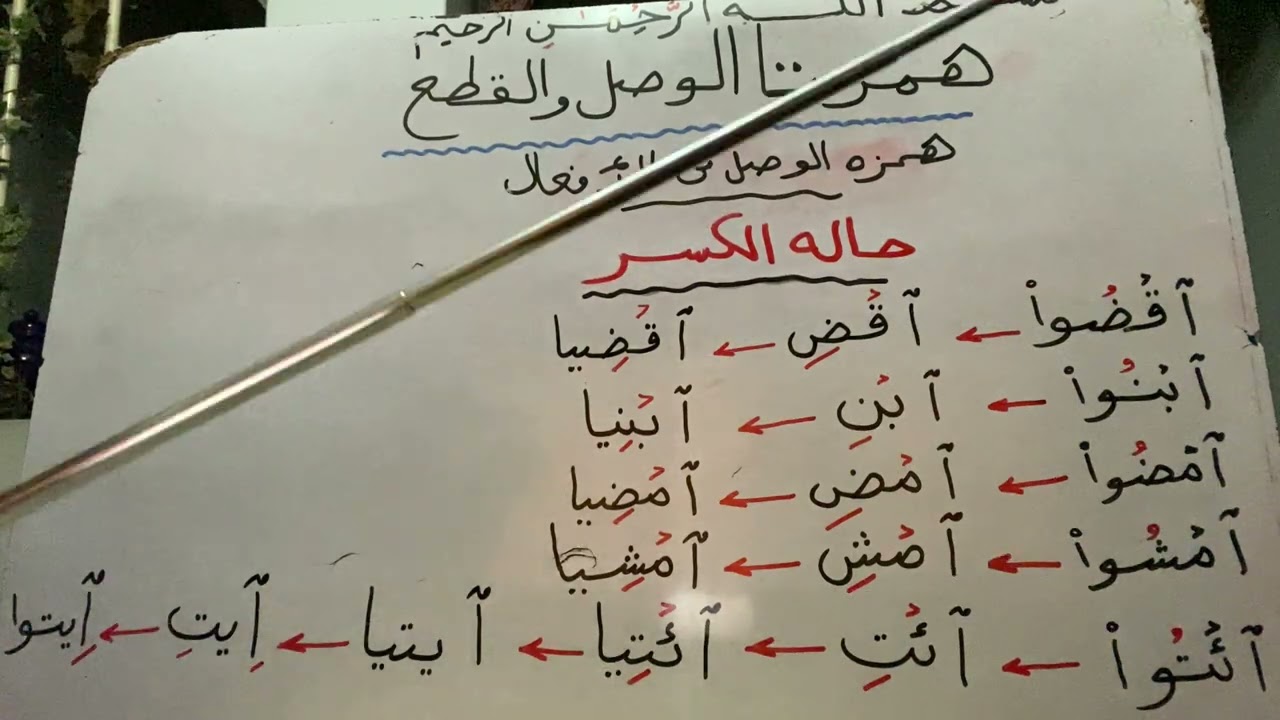 الله الرَّحْمَٰنِ الرحيم
همزتا الوصل والقطع
همزه الوصل فى الأفعال
حاله الكسر
ٱقْضُوا۟ ← ٱقْضِ ← ٱقْضِيا
ٱبْنُوا۟ ← ٱبْنِ ← ٱبْنِيا
ٱمْضُوا۟ ← ٱمْضِ ← ٱمْضِيا
ٱمْشُوا۟ ← ٱمْشِ ← ٱمْشِيا
ٱئْتُوا۟ ← ٱئْتِ ← ٱئْتِيا ← ٱيتيا ← ٱِيتِ ← ٱِيتوا